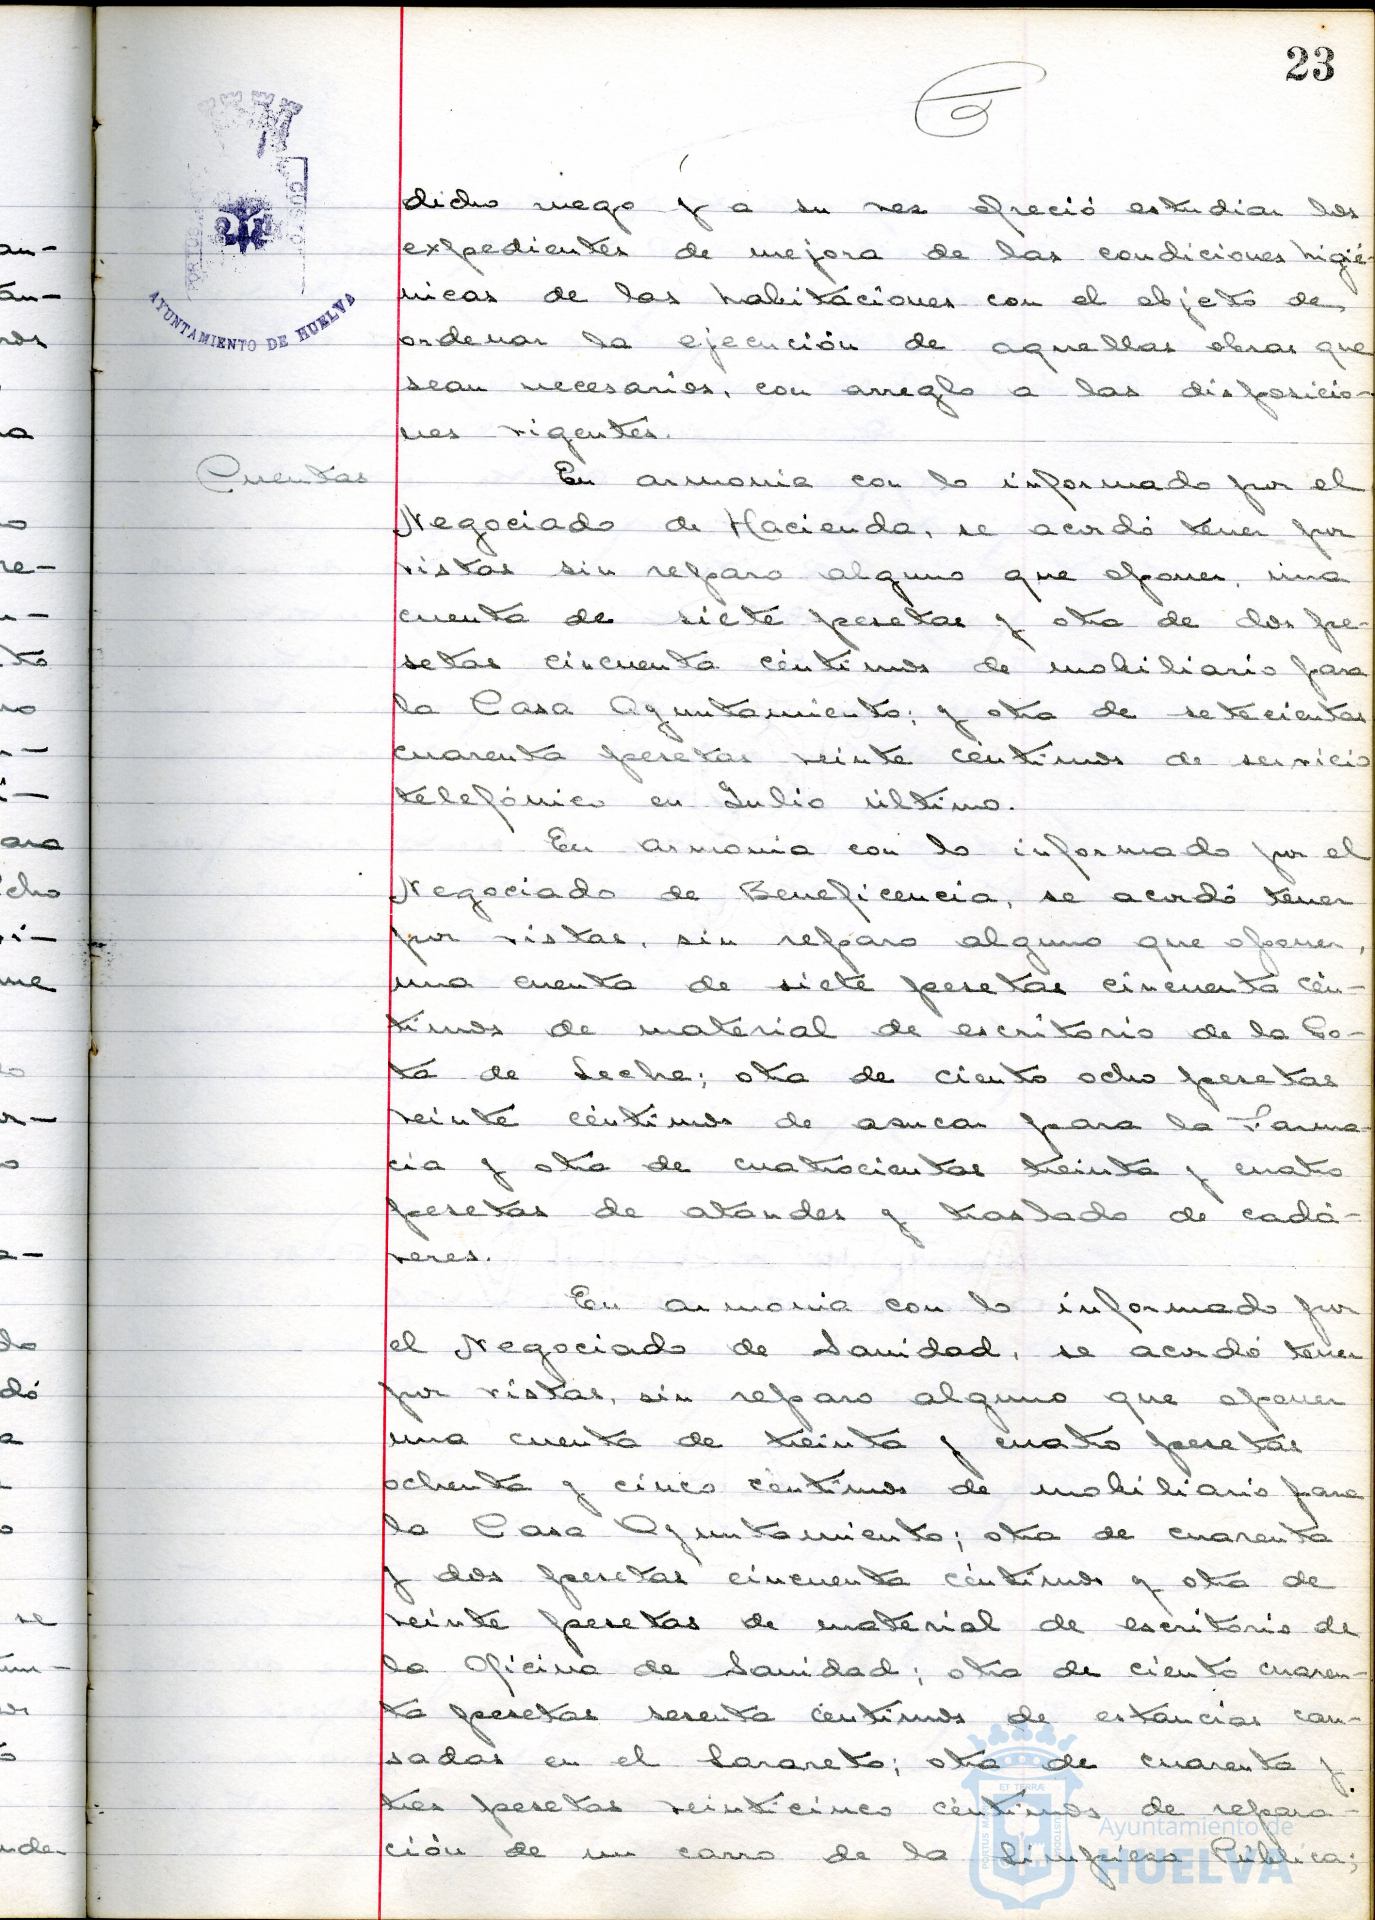 23
dicho ruego y a su vez ofreció estudiar los
expedientes de mejora de las condiciones higié-
nicas de las habitaciones con el objeto de
ordenar la ejecución de aquellas obras que
sean necesarias, con arreglo a las disposicio-
nes vigentes.
Cuentas
En armonia con lo informado por el
Negociado de Hacienda, se acordó tener por
vistas sin reparo alguno que oponer, una
cuenta de siete pesetas y otra de dos pe-
setas cincuenta céntimos de mobiliario para
la Casa Ayuntamiento; y otra de setecientas
cuarenta pesetas veinte céntimos de servicio
telefónico en Julio último.
En armonia con lo informado por el
Negociado de Beneficencia, se acordó tener
por vistas, sin reparo alguno que oponer,
una cuenta de siete pesetas cincuenta cén-
timos de material de escritorio de la Go-
ta de Leche; otra de ciento ocho pesetas
veinte céntimos de azucar para la Farma-
cia y otra de cuatrocientas treinta y cuatro
pesetas de ataudes y traslado de cadá-
veres.
En armonia con lo informado por
el Negociado de Sanidad, se acordó tener
por vistas, sin reparo alguno que oponer
una cuenta de treinta y cuatro pesetas
ochenta y cinco céntimos de mobiliario para
la Casa Ayuntamiento; otra de cuarenta
y dos pesetas cincuenta céntimos y otra de
veinte pesetas de material de escritorio de
la Oficina de Sanidad; otra de ciento cuaren-
ta pesetas sesenta céntimos de estancias cau-
sadas en el Lazareto; otra de cuarenta y
tres pesetas veinticinco céntimos de repara-
ción de un carro de la Limpieza Pública;
AYUNTAMIENTO DE HUELVA
Ayuntamiento de
HUELVA